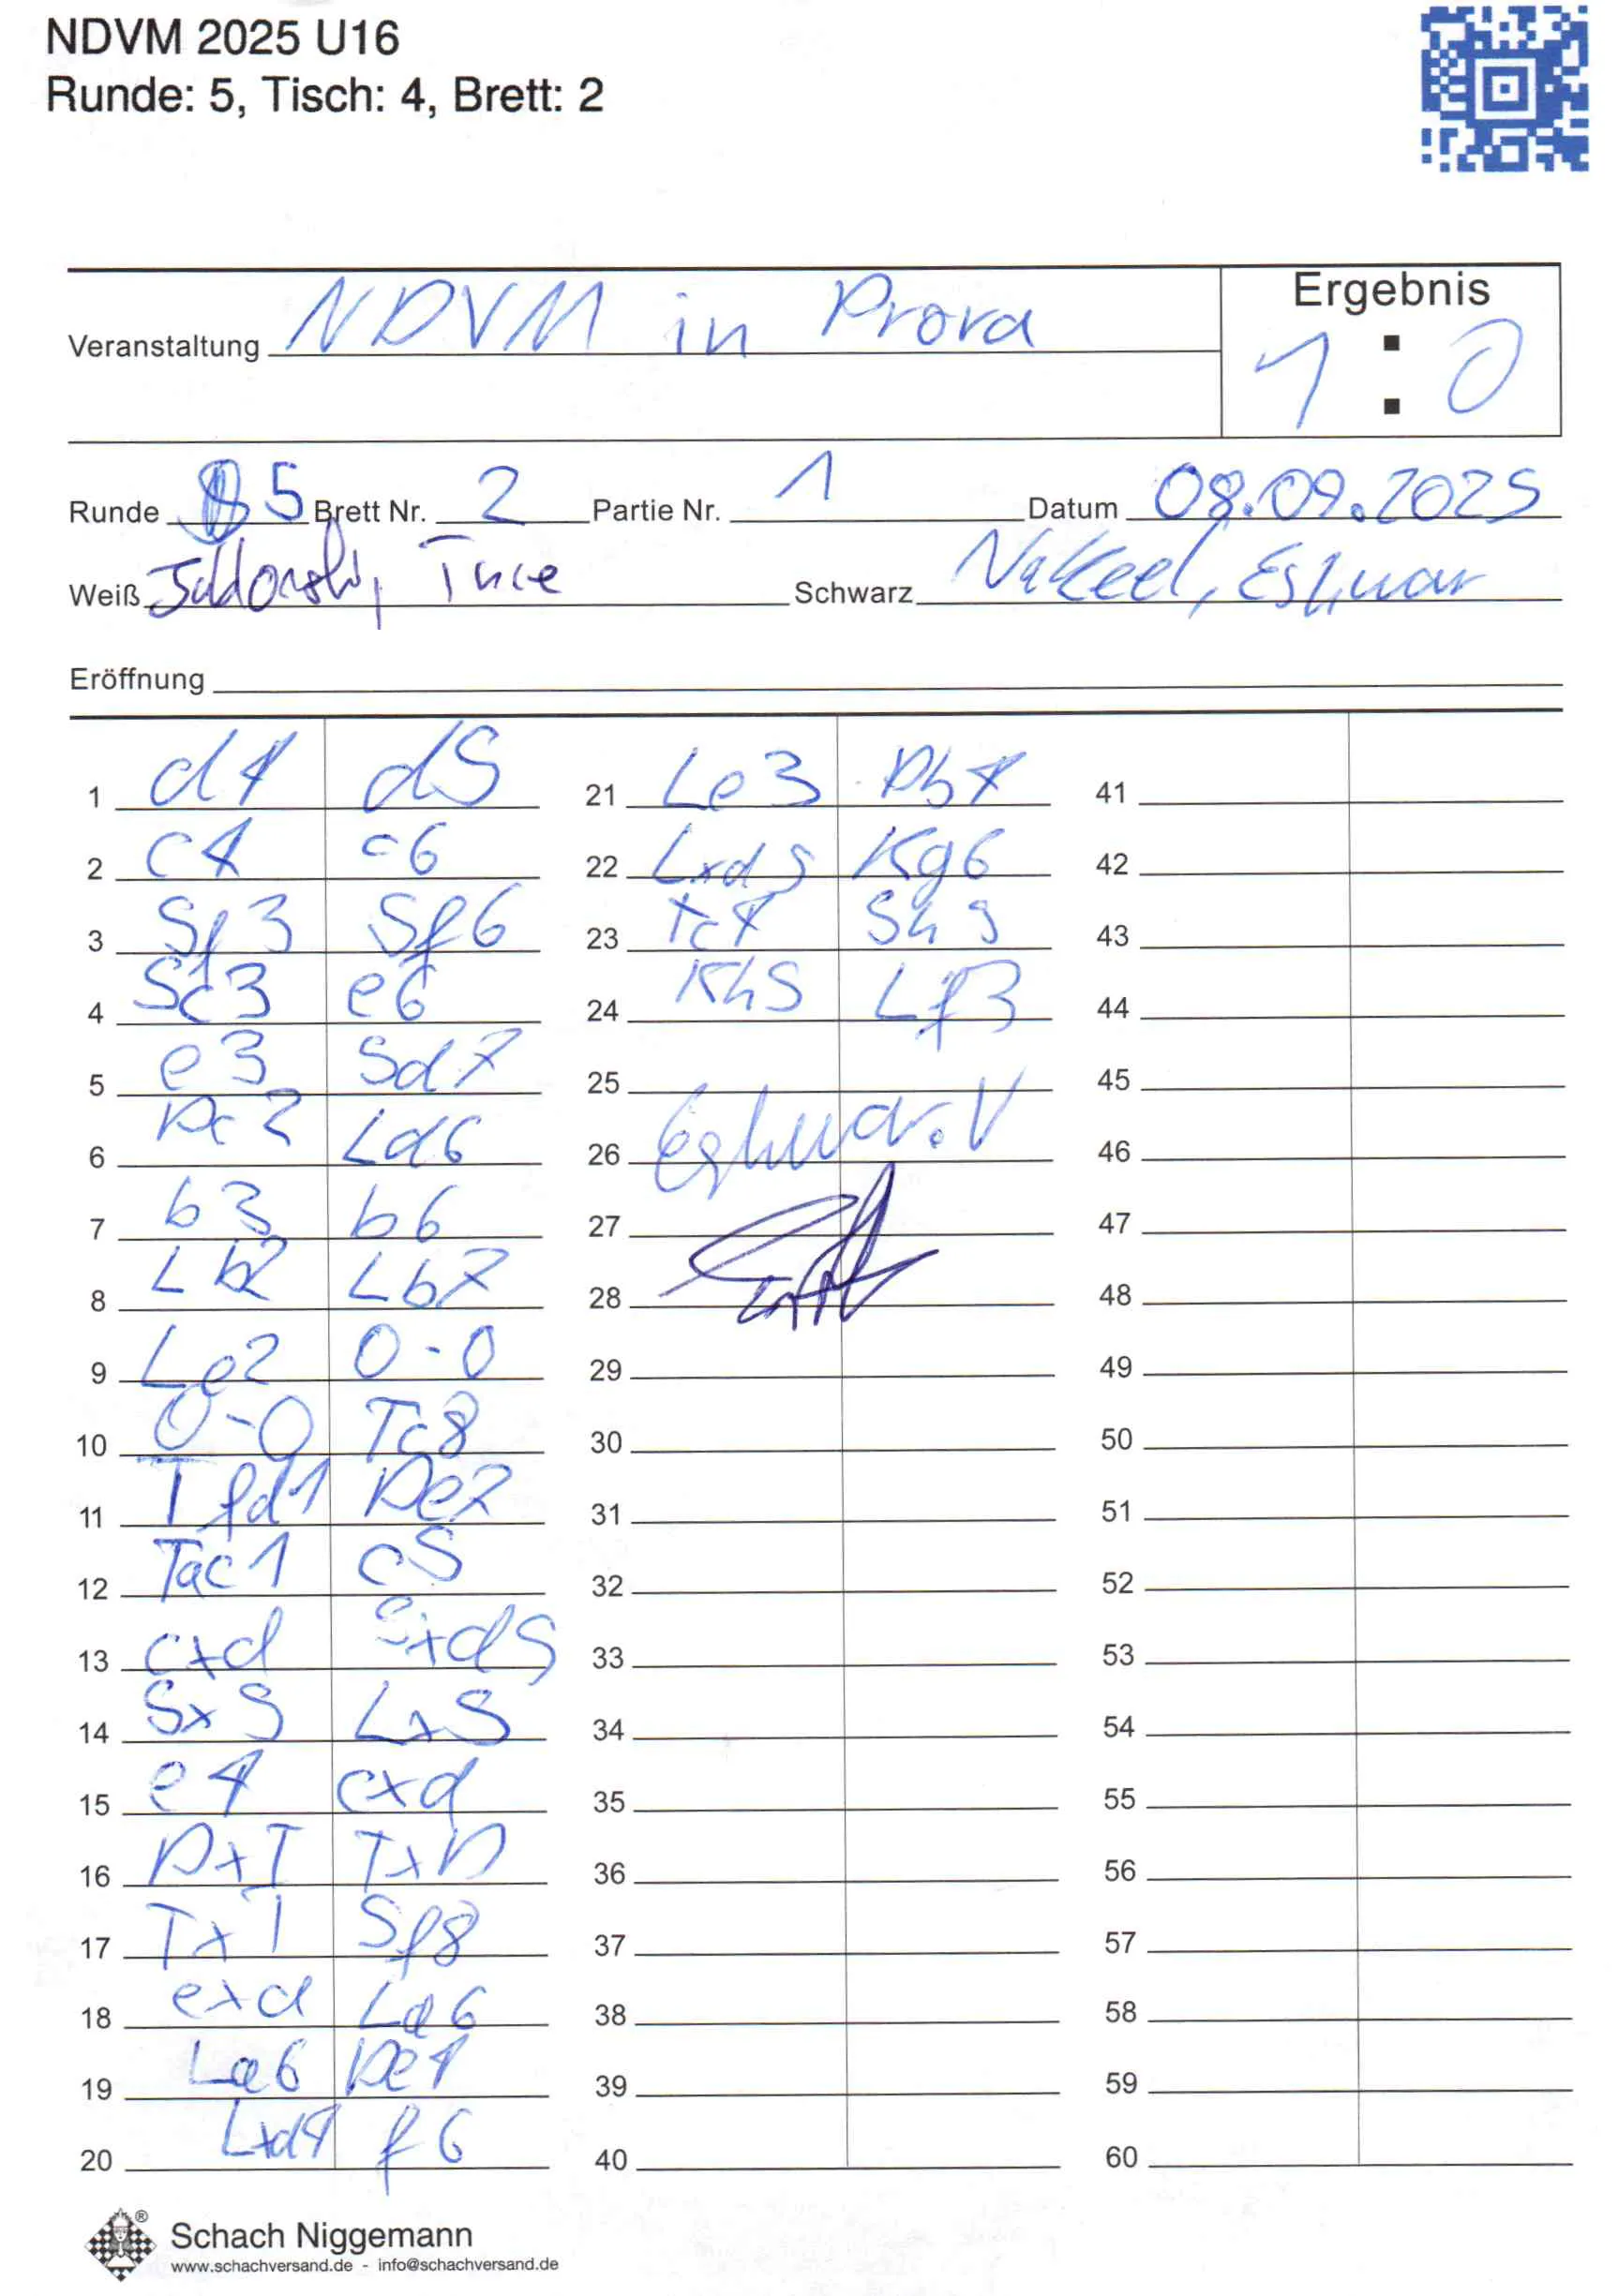 NDVM 2025 U16
Runde: 5, Tisch: 4, Brett: 2
Ergebnis
Veranstaltung NDVM in Prora
1 : 0
Runde 5 Brett Nr. 2 Partie Nr. 1 Datum 08.09.2025
Weiß Schwarz Eshwar
Eröffnung
1 d4 d5
2 c4 c6
3 Sf3 Sf6
4 Sc3 e6
5 e3 Sd7
6 Dc2 Ld6
7 b3 b6
8 Lb2 Lb7
9 Le2 0-0
10 0-0 Tc8
11 Tfd1 De7
12 Tac1 c5
13 cxd Sxd5
14 SxS LxS
15 e4 cxd
16 DxT TxD
17 TxT Sf8
18 exd La6
19 La6 De4
20 Lxd4 f6
21 Le3 Db4
22 Lxd5 Kg6
23 Tc4 Sh5
24 Kh5 Lf3
25
26 Eshwar.V
27
28
29
30
31
32
33
34
35
36
37
38
39
40
41
42
43
44
45
46
47
48
49
50
51
52
53
54
55
56
57
58
59
60
Schach Niggemann
www.schachversand.de - info@schachversand.de